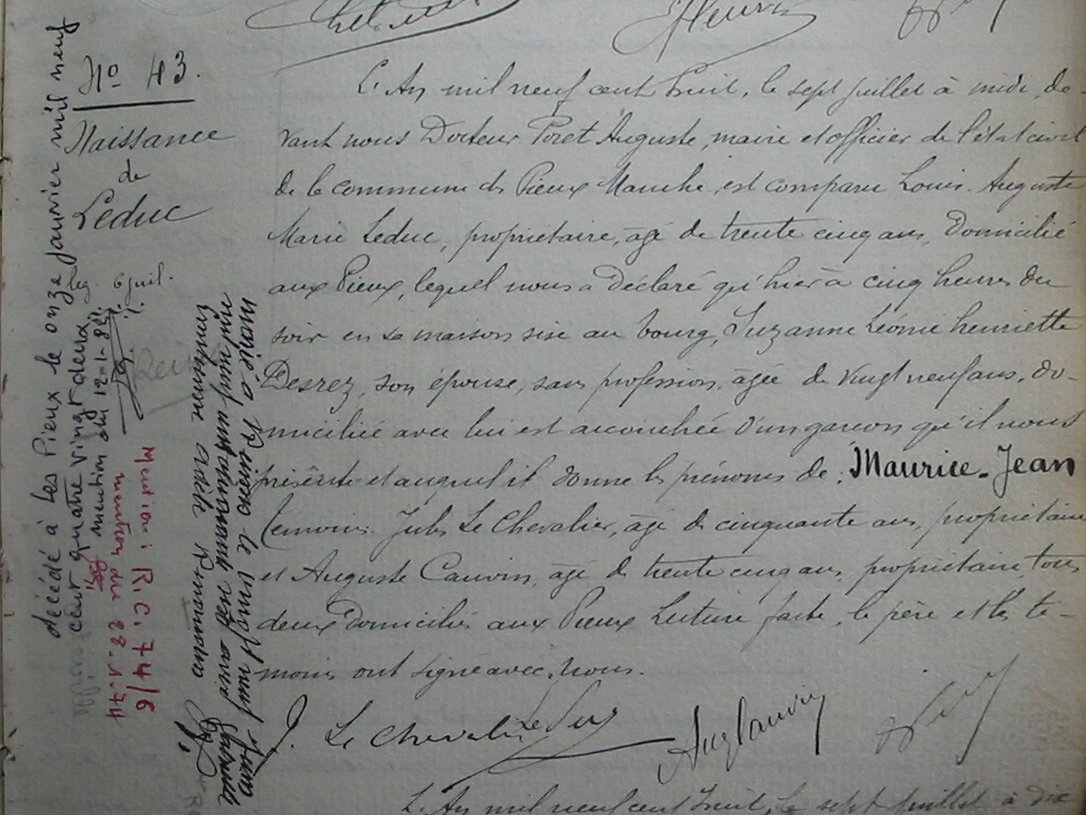 N° 43.
Naissance
de
Leduc
les 6 juil.
L'An mil neuf cent huit, le sept juillet à midi, de-
vant nous Docteur Poret Auguste, maire et officier de l'état civil
de la commune des Pieux Manche, est comparu Louis Auguste
Marie Leduc, propriétaire, âgé de trente cinq ans, Domicilié
aux Pieux, lequel nous a Déclaré qu'hier à cinq heures du
soir en sa maison sise au bourg, Suzanne Léonie henriette
Desrez, son épouse, sans profession, âgée de vingt neuf ans, do-
miciliée avec lui est accouchée d'un garçon qu'il nous
présente et auquel il donne les prénoms de : Maurice-Jean
Témoins : Jules Le Chevalier, âgé de cinquante ans, propriétaire
et Auguste Cauvin, âgé de trente cinq ans, propriétaire, tous
deux Domiciliés aux Pieux Lecture faite, le père et les té-
moins ont signé avec nous.
J. Le Chevalier Leduc Aug Cauvin
L'An mil neuf cent huit, le sept juillet à dix
décédé à Les Pieux le onze janvier mil neuf
cent quatre vingt deux
mention du 12-1-82
Mention : R.C. 74/6
mention du 28.1.74
Marié à
mil neuf
avec